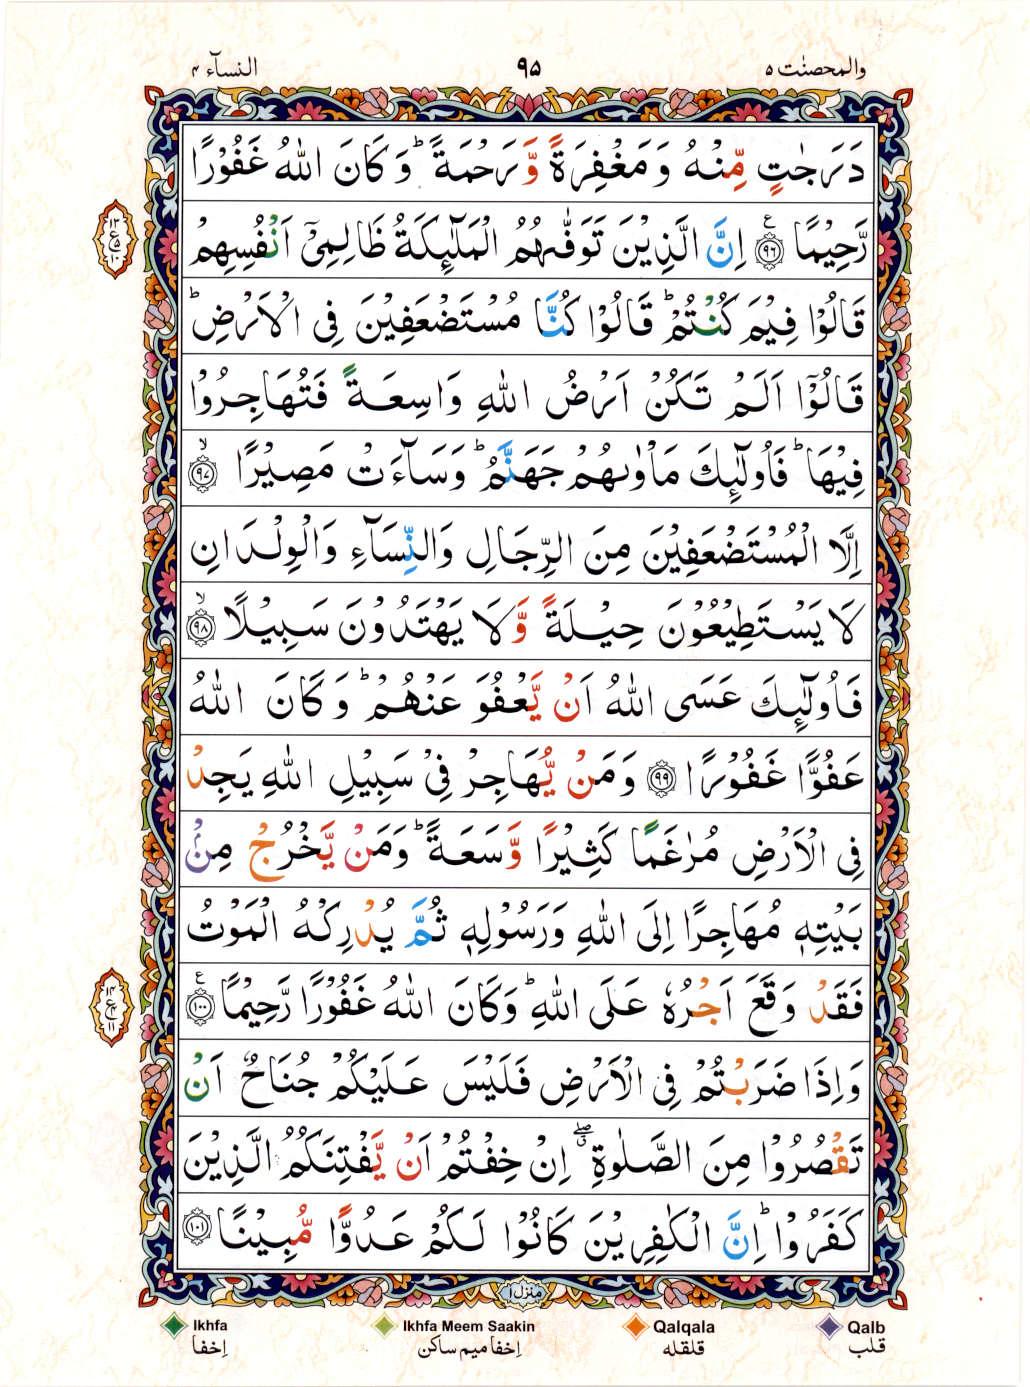 والمحصنٰت ۵
۹۵
النسآء ۴
دَرَجٰتٍ مِّنْهُ وَمَغْفِرَةً وَّرَحْمَةً ؕ وَكَانَ اللّٰهُ غَفُوْرًا
رَّحِيْمًا ۹۶ ع اِنَّ الَّذِيْنَ تَوَفّٰٮهُمُ الْمَلٰٓئِكَةُ ظَالِمِىْٓ اَنْفُسِهِمْ
۱۳ ع ۵ ۱۰
قَالُوْا فِيْمَ كُنْتُمْ ؕ قَالُوْا كُنَّا مُسْتَضْعَفِيْنَ فِى الْاَرْضِ ؕ
قَالُوْٓا اَلَمْ تَكُنْ اَرْضُ اللّٰهِ وَاسِعَةً فَتُهَاجِرُوْا
فِيْهَا ؕ فَاُولٰٓئِكَ مَاْوٰٮهُمْ جَهَنَّمُ ؕ وَسَآءَتْ مَصِيْرًا ۙ ۹۷
اِلَّا الْمُسْتَضْعَفِيْنَ مِنَ الرِّجَالِ وَالنِّسَآءِ وَالْوِلْدَانِ
لَا يَسْتَطِيْعُوْنَ حِيْلَةً وَّلَا يَهْتَدُوْنَ سَبِيْلًا ۙ ۹۸
فَاُولٰٓئِكَ عَسَى اللّٰهُ اَنْ يَّعْفُوَ عَنْهُمْ ؕ وَكَانَ اللّٰهُ
عَفُوًّا غَفُوْرًا ۹۹ وَمَنْ يُّهَاجِرْ فِىْ سَبِيْلِ اللّٰهِ يَجِدْ
فِى الْاَرْضِ مُرٰغَمًا كَثِيْرًا وَّسَعَةً ؕ وَمَنْ يَّخْرُجْ مِنْۢ
بَيْتِهٖ مُهَاجِرًا اِلَى اللّٰهِ وَرَسُوْلِهٖ ثُمَّ يُدْرِكْهُ الْمَوْتُ
فَقَدْ وَقَعَ اَجْرُهٗ عَلَى اللّٰهِ ؕ وَكَانَ اللّٰهُ غَفُوْرًا رَّحِيْمًا ۱۰۰ ع
۱۴ ع ۴ ۱۱
وَاِذَا ضَرَبْتُمْ فِى الْاَرْضِ فَلَيْسَ عَلَيْكُمْ جُنَاحٌ اَنْ
تَقْصُرُوْا مِنَ الصَّلٰوةِ ۖ اِنْ خِفْتُمْ اَنْ يَّفْتِنَكُمُ الَّذِيْنَ
كَفَرُوْا ؕ اِنَّ الْكٰفِرِيْنَ كَانُوْا لَكُمْ عَدُوًّا مُّبِيْنًا ۱۰۱
منزل ۱
Ikhfa
Ikhfa Meem Saakin
Qalqala
Qalb
اِخفا
اِخفا میم ساکن
قلقله
قلب